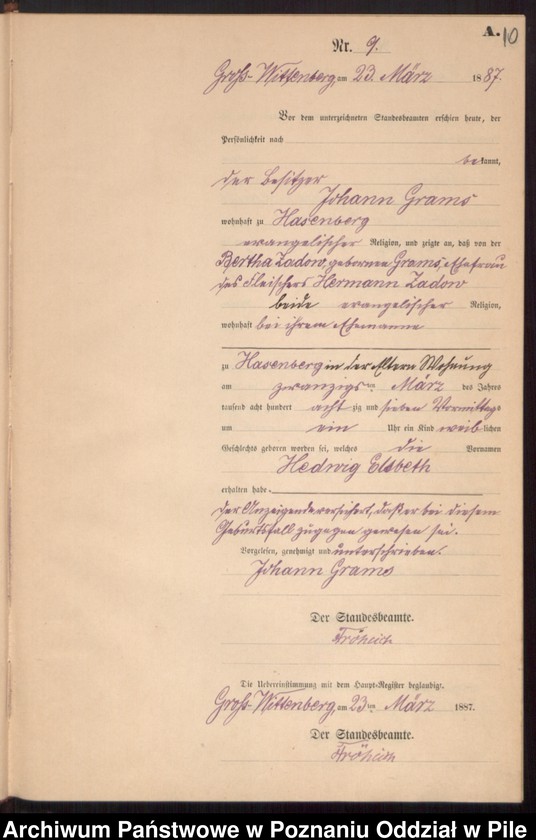 A. 10
Nr. 9.
Groß-Wittenberg, am 23. März 1887.
Vor dem unterzeichneten Standesbeamten erschien heute, der
Persönlichkeit nach
bekannt,
der Besitzer
Johann Grams
wohnhaft zu Hasenberg
evangelischer Religion, und zeigte an, daß von der
Bertha Zadow, geborenen Grams, Ehefrau
des Fleischers Hermann Zadow
beide evangelischer Religion,
wohnhaft bei ihrem Ehemanne
zu Hasenberg in der Eltern Wohnung
am zwanzigsten März des Jahres
tausend acht hundert achtzig und sieben Vormittags
um ein Uhr ein Kind weiblichen
Geschlechts geboren worden sei, welches die Vornamen
Hedwig Elsbeth
erhalten habe.
Der Anzeigende versichert, daß er bei diesem
Geburtsfall zugegen gewesen sei.
Vorgelesen, genehmigt und unterschrieben.
Johann Grams
Der Standesbeamte.
Die Uebereinstimmung mit dem Haupt-Register beglaubigt.
Groß-Wittenberg, am 23ten März 1887.
Der Standesbeamte.
Archiwum Państwowe w Poznaniu Oddział w Pile